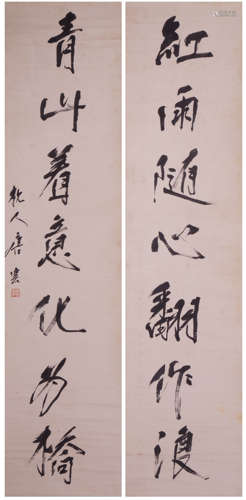 紅雨随心翻作浪
青山着意化为橋
杭人唐雲